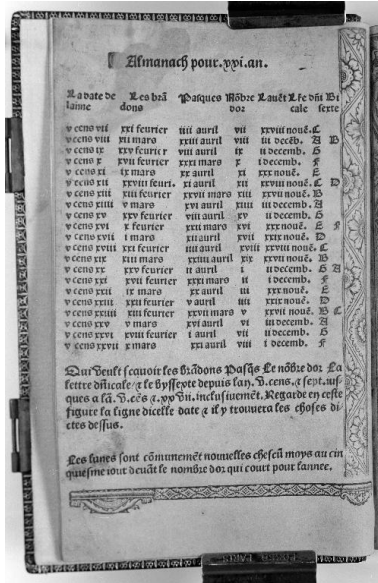 Almanach pour .xxi. an.
La date de Les brā Pasques Nōbre Lauēt Lr̄e dñi Bi
lanne dons dor cale sexte
v cens vii xxi feurier iiii auril vii xxviii nouē. C
v cens viii xii mars xxiii auril viii iii decēb. A B
v cens ix xxv feurier viii auril ix ii decemb. G
v cens x xvii feurier xxxi mars x i decemb. F
v cens xi ix mars xx auril xi xxx nouē. E
v cens xii xxviii feuri. xi auril xii xxviii nouē. C D
v cens xiii xiii feurier xxvii mars xiii xxvii nouē. B
v cens xiiii v mars xvi auril xiiii iii decemb. A
v cens xv xxv feurier viii auril xv ii decemb. G
v cens xvi x feurier xxiii mars xvi xxx nouē. E F
v cens xvii i mars xii auril xvii xxix nouē. D
v cens xviii xxi feurier iiii auril xviii xxviii nouē. C
v cens xix xiii mars xxiiii auril xix xxvii nouē. B
v cens xx xxv feurier ii auril i ii decemb. G A
v cens xxi xvii feurier xxxi mars ii i decemb. F
v cens xxii ix mars xx auril iii xxx nouē. E
v cens xxiii xxii feurier v auril iiii xxix nouē. D
v cens xxiiii xiii feurier xxvii mars v xxvii nouē. B C
v cens xxv v mars xvi auril vi iii decemb. A
v cens xxvi xviii feurier i auril vii ii decemb. G
v cens xxvii x mars xxi auril viii i decemb. F
Qui veult scauoir les brādons Pasq̄s Le nōbre dor La
lettre dñicale ⁊ le bysexte depuis lan. v. cens. ⁊ sept. ius-
ques a lā. v. cēs ⁊ .xxvii. inclusiuemēt. Regarde en ceste
figure la ligne dicelle date ⁊ il y trouuera les choses di
ctes dessus.
Les lunes sont cōmunemēt nouuelles chescū moys au cin
quiesme iour deuāt le nombre dor qui court pour lannee.